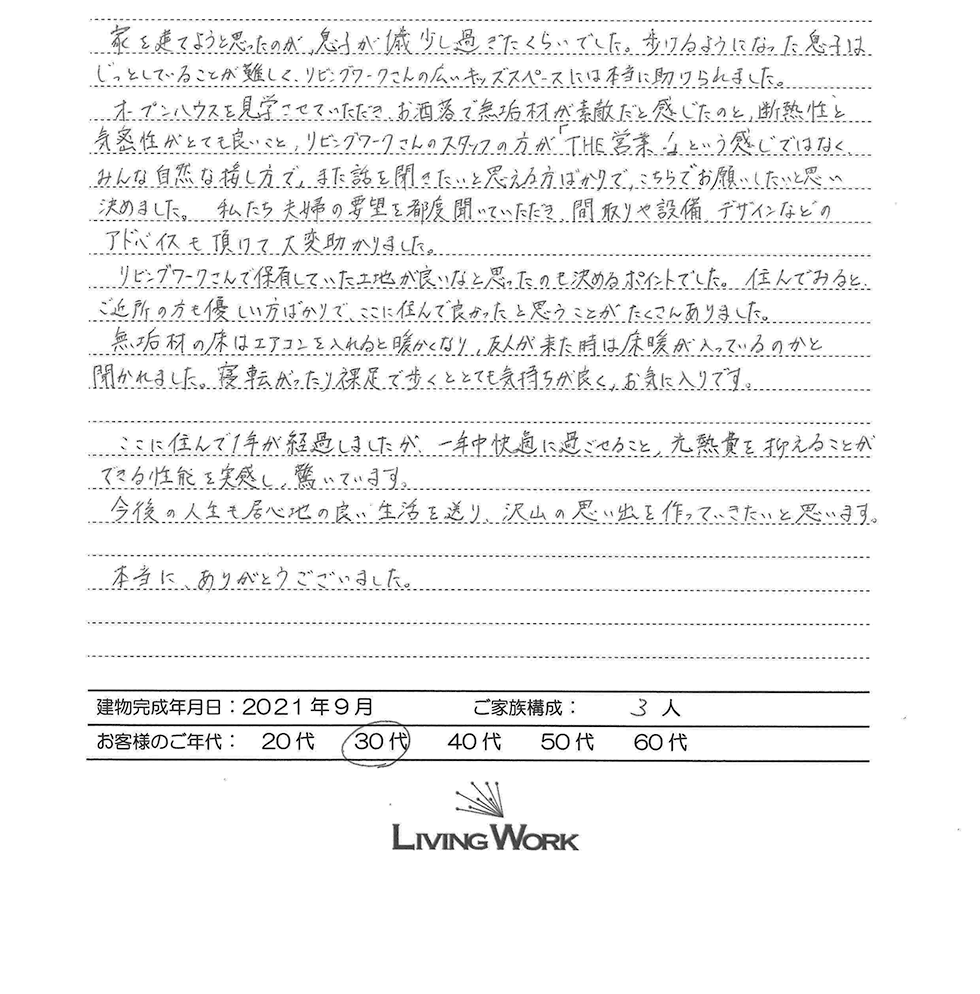 家を建てようと思ったのが、息子が1歳少し過ぎたくらいでした。歩けるようになった息子は
じっとしていることが難しく、リビングワークさんの広いキッズスペースには本当に助けられました。
オープンハウスを見学させていただき、お洒落で無垢材が素敵だと感じたのと、断熱性と
気密性がとても良いこと、リビングワークさんのスタッフの方が「THE営業!」という感じではなく、
みんな自然な接し方で、また話を聞きたいと思える方ばかりで、こちらでお願いしたいと思い
決めました。 私たち夫婦の要望を都度聞いていただき、間取りや設備、デザインなどの
アドバイスも頂けて大変助かりました。
リビングワークさんで保有していた土地が良いなと思ったのも決めるポイントでした。住んでみると、
ご近所の方も優しい方ばかりで、ここに住んで良かったと思うことがたくさんありました。
無垢材の床はエアコンを入れると暖かくなり、友人が来た時は床暖が入っているのかと
聞かれました。寝転がったり裸足で歩くととても気持ちが良く、お気に入りです。
ここに住んで1年が経過しましたが、一年中快適に過ごせること、光熱費を抑えることが
できる性能を実感し、驚いています。
今後の人生も居心地の良い生活を送り、沢山の思い出を作っていきたいと思います。
本当に、ありがとうございました。
建物完成年月日:2021年9月 ご家族構成: 3 人
お客様のご年代: 20代 30代 40代 50代 60代
LIVING WORK